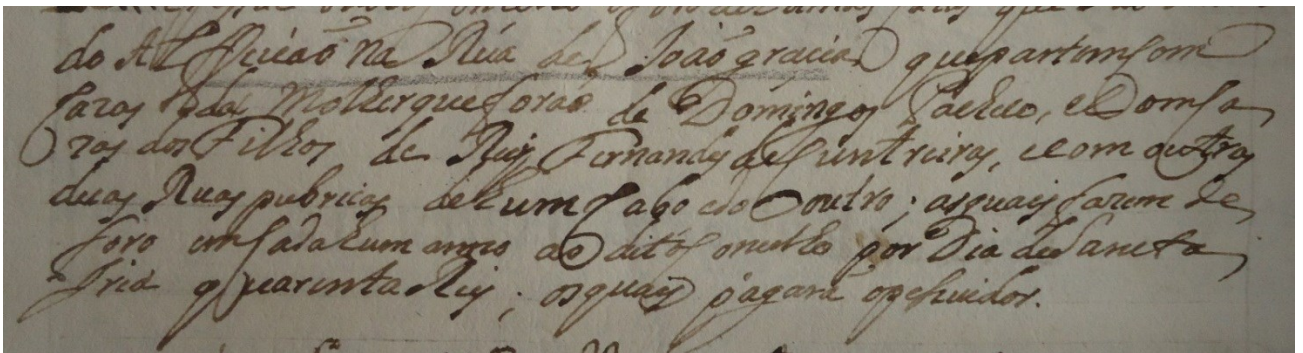 do na Rúa de João gracia que partem com
cazas da Molher que forão de Domingos Pacheco, e Com ca
zas dos Filhos de Ruy Fernandes de Cuntreiras, e com outras
duas Ruas pubricas de hum cabo e do outro; as quais fazem de
foro em cada hum anno ao dito Concelho por Dia de Sancta
Iria quarenta Reis; os quais pagará o pesuidor.